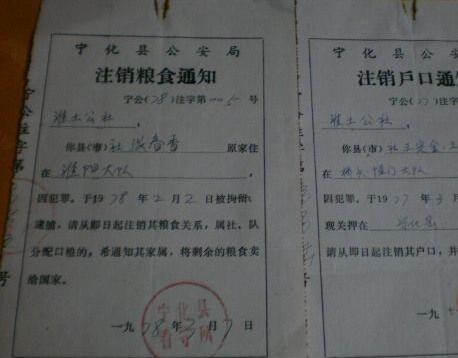 宁化县公安局
注销粮食通知
宁公(78)注字第 号
淮土公社，
你县(市)社 春香 原家住
在 淮阳大队，
因犯罪。于1978年2月2日被拘留、
逮捕，请从即日起注销其粮食关系，属社、队
分配口粮的，希通知其家属，将剩余的粮食卖
给国家。
一九78年3月7日
宁化县
看守所
宁化县公安
注销户口通
宁公( )注字
淮土公社，
你县(市)社
在 大队
因犯罪。于1977年3月
现关押在
请从即日起注销其户口，并
一九